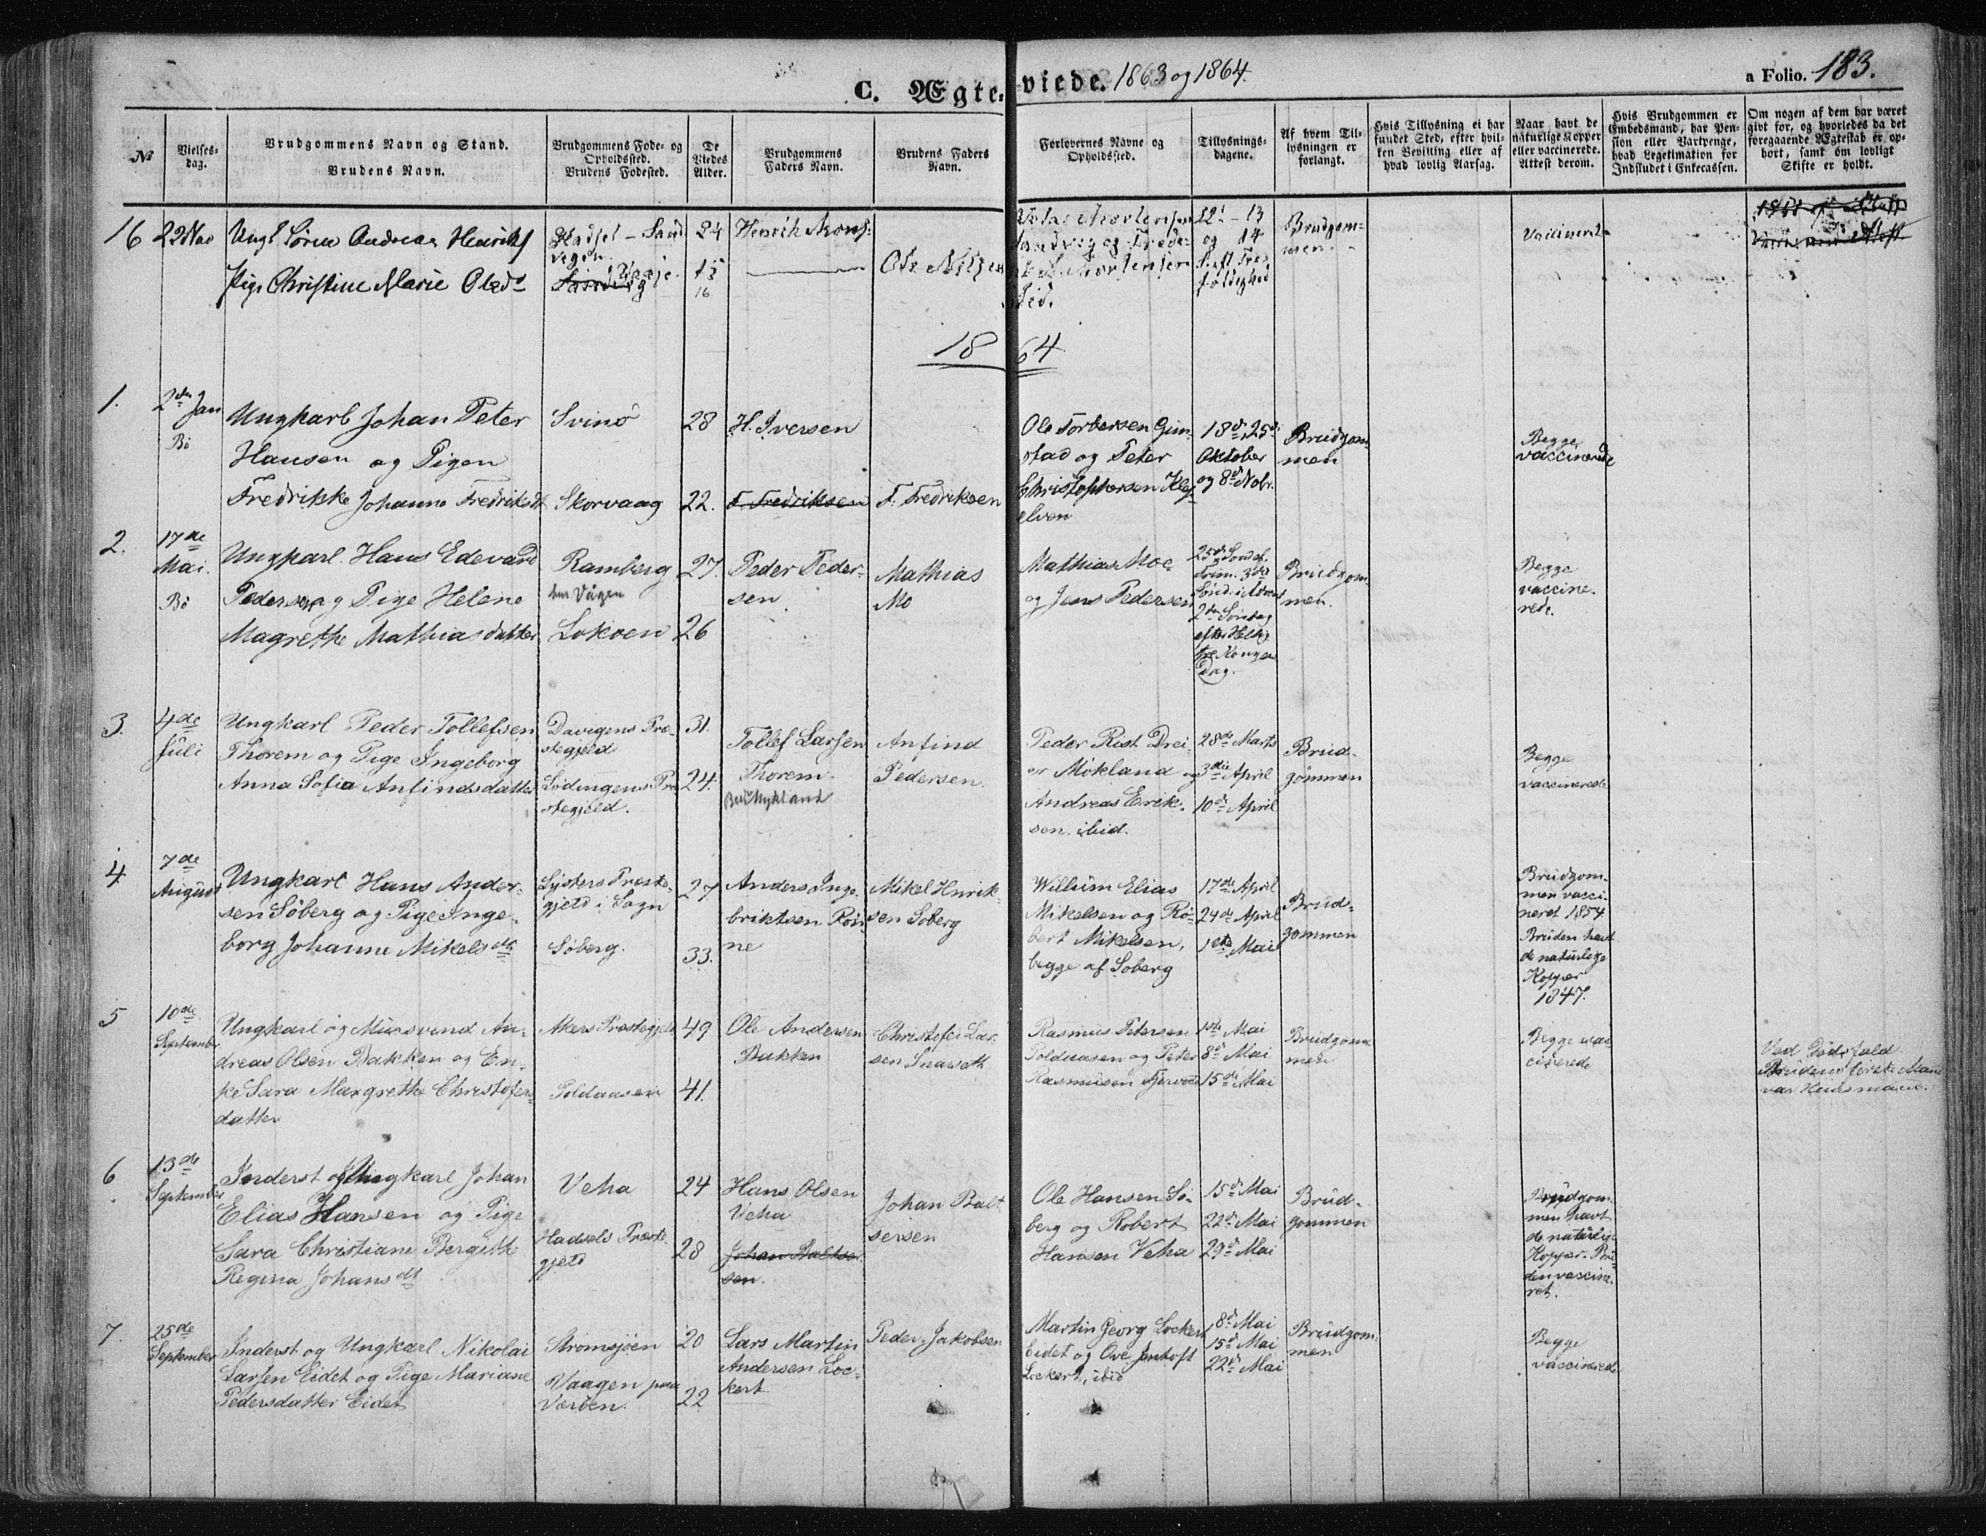 C. Ægteviede. 1863 og 1864.
a Folio. 183.
№
Vielses-
dag.
Brudgommens Navn og Stand.
Brudens Navn.
Brudgommens Føde- og
Opholdssted.
Brudens Fødested.
De
Viedes
Alder.
Brudgommens
Faders Navn.
Brudens Faders
Navn.
Forlovernes Navne og
Opholdssted.
Tillysnings-
dagene.
Af hvem Til-
lysningen er
forlangt.
Hvis Tillysning ei har
fundet Sted, efter hvil-
ken Bevilling eller af
hvad lovlig Aarsag.
Naar havt de
naturlige Kopper
eller vaccinerede.
Attest derom.
Hvis Brudgommen er
Embedsmand, har Pen-
sion eller Vartpenge,
hvad Legetimation for
Indskudet i Enkecassen.
Om nogen af dem har været
givt for, og hvorledes da det
foregaaende Ægtestad er op-
hørt, samt om lovligt
Skifte er holdt.
16
22 Nov
Ungk. Sören Andreas Henriks
Pige Christine Marie Olsd.
Hadsel - Sand
vegen
24
Henrik
Ole Nilsen
Mortensen
Sandvig og Frede-
Mortensen
ibid.
12. - 13
og 14
S. eft. Tre-
foldighed
Brudgom-
men.
Vaccineret
1864
1.
2den Jan
Bø
Ungkarl Johan Peter
Hansen og Pigen
Fredrikke Johanna Fredriksdt
Svinø
Skorvaag
28
22.
H. Iversen
F. Fredriksen
F. Fredriksen
Ole Torbersen Gim-
stad og Peter
Christophersen Klef-
elven
18de, 25de
Oktober
og 8de Nobr.
Brudgom
men
Begge
vaccinerede
2.
17de
Mai.
Bø
Ungkarl. Hans Edevard
Pedersen og Pige Helene
Magrethe Mathiasdatter
Ramberg
Vågen
Lokøen
27.
26
Peder Peder-
sen
Mathias
Mo
Mathias Moe
og Jens Pedersen
25de Sond. ef.
Trin. 3die
Sönd. i Advent
2den Söndag
efter Hellig
tre Konger
Dag.
Brudgom
men.
Begge
vaccine-
rede.
3.
4de
Juli
Ungkarl Peder Tollefsen
Thorem og Pige Ingeborg
Anna Sofia Anfindsdatter
Davigens Præ-
stegjeld
Lødingens Præ-
stegjeld.
31.
24.
Tollef Larsen
Thorem.
Anfind
Pedersen.
Peder Rist Drei-
er Mökland og
Andreas Erik-
sen. ibid.
28de Marts
3die April
10de April
Brud-
gommen
Begge
vaccinerede
4
7de
August
Ungkarl Hans Ander-
sen Söberg og Pige Inge-
borg Johanne Mikelsdt
Lysters Præste-
gjeld i Sogn
Söberg.
27
33.
Anders Inge-
briktsen Røi-
ne
Mikel Hnrik-
sen Söberg
Willum Elias
Mikelsen og Rö-
bert Mikelsen,
begge af Söberg
17de April
24de April
1ste Mai
Brud-
gommen
Brudgom-
men vacci-
neret 1854
Bruden havt
de naturlige
Kopper
1847.
5
10de
September
Ungkarl og Muusvend An-
dreas Olsen Bakken og En-
ke Sara Margrethe Christofers-
datter
Akers Præstegjeld
Soldaasen
49
41.
Ole Andersen
Bakken
Christofer Lar-
sen Snarseth
Rasmus Petersen
Soldaasen og Peter
Rasmusen Fjærvoll
1ste Mai
8de Mai
15de Mai
Brudgom-
men
Begge vac-
cinerede
Ved Dödsfald
Brudens förste Mand
var Huusmand.
6
13de
September
Inderst og Ungkarl Johan
Elias Hansen og Pige
Sara Christiane Bergitte
Regina Johansdt
Veha
Hadsels Præste-
gjeld
24
28
Hans Olsen
Veha
Johan Baltser-
sen.
Johan Balt-
sersen
Ole Hansen Sö-
berg og Robert
Hansen Veha
15de Mai
22de Mai
29de Mai
Brud-
gommen
Brudgom-
men havt
de naturlige
Kopper. Bru-
den vaccine-
ret.
7.
25de
September
Inderst og Ungkarl Nikolai
Larsen Eidet og Pige Mariane
Pedersdatter Eidet
Strømsjøen
Vaagen paa
Værøen.
20
22
Lars Martin
Andersen Loc-
kert
Peder Jakobsen
Martin Georg Lockert
Eidet og Ove Jentoft
Lockert, ibid
8de Mai
15de Mai
22de Mai
Brudgom-
men
Begge
vaccinerede